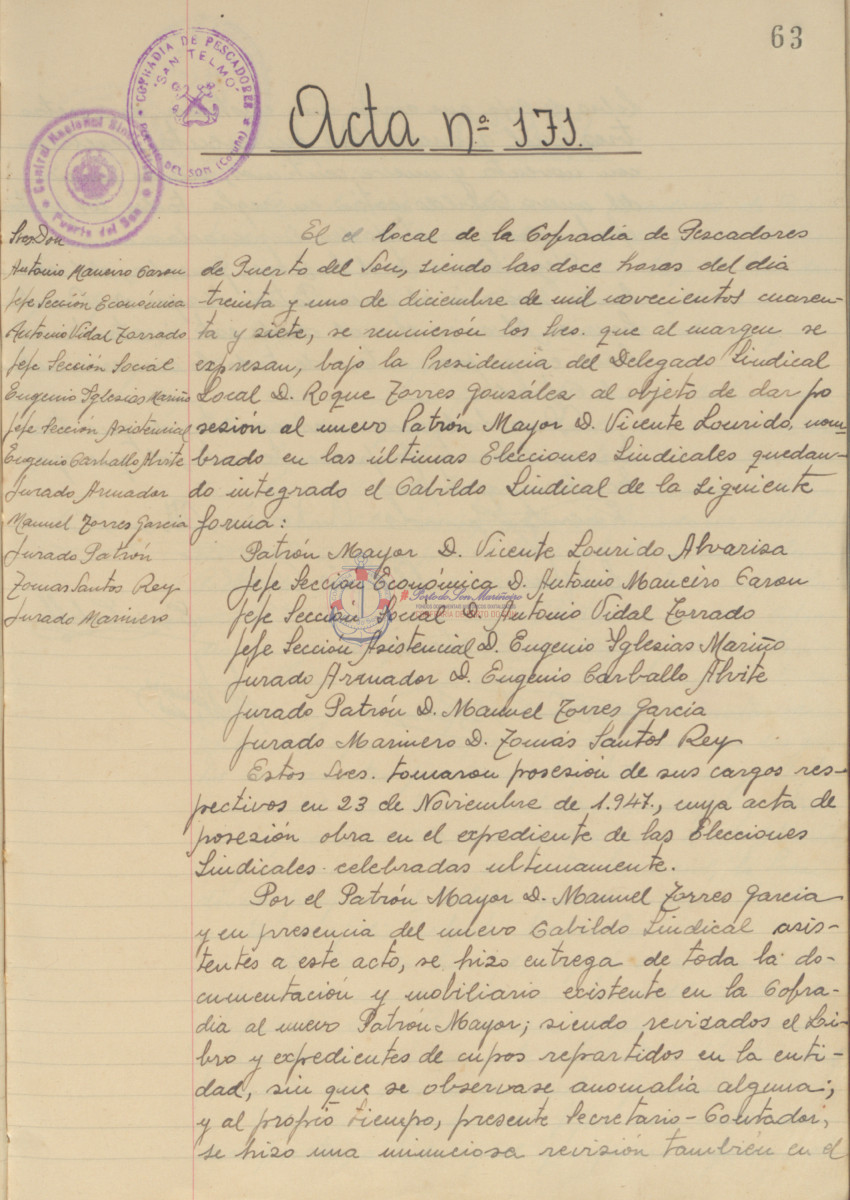 63
COFRADIA DE PESCADORES
"SAN TELMO"
DEL SON (Coruña)
Central Nacional
Puerto del Son
Acta nº 171.
Sres Don
Antonio Maneiro Caron
Jefe Sección Económica
Antonio Vidal Torrado
Jefe Sección Social
Eugenio Iglesias Mariño
Jefe Sección Asistencial
Eugenio Carballo Alvite
Jurado Armador
Manuel Torres Garcia
Jurado Patrón
Tomas Santos Rey
Jurado Marinero
El el local de la Cofradia de Pescadores
de Puerto del Son, siendo las doce horas del dia
treinta y uno de diciembre de mil novecientos cuaren-
ta y siete, se reunierón los Sres. que al margen se
expresan, bajo la Presidencia del Delegado Sindical
Local D. Roque Torres González al objeto de dar po
sesión al nuevo Patrón Mayor D. Vicente Lourido, nom-
brado en las últimas Elecciones Sindicales quedan-
do integrado el Cabildo Sindical de la siguiente
forma:
Patrón Mayor D. Vicente Lourido Alvarisa
Jefe Sección Económica D. Antonio Maneiro Caron
Jefe Sección Social D. Antonio Vidal Torrado
Jefe Seccion Asistencial D. Eugenio Iglesias Mariño
Jurado Armador D. Eugenio Carballo Alvite
Jurado Patrón D. Manuel Torres Garcia
Jurado Marinero D. Tomás Santos Rey
Porto do Son Mariñeiro
Estos Sres. tomaron posesión de sus cargos res-
pectivos en 23 de Noviembre de 1.947., cuya acta de
posesión obra en el expediente de las Elecciones
Sindicales celebradas ultimamente.
Por el Patrón Mayor D. Manuel Torres Garcia
y en presencia del nuevo Cabildo Sindical asis-
tentes a este acto, se hizo entrega de toda la do-
cumentación y mobiliario existente en la Cofra-
dia al nuevo Patrón Mayor; siendo revizados el Li-
bro y expedientes de cupos repartidos en la enti-
dad, sin que se observase anomalia alguna;
y al propio tiempo, presente Secretario-Contador,
se hizo una minuciosa revisión también en el